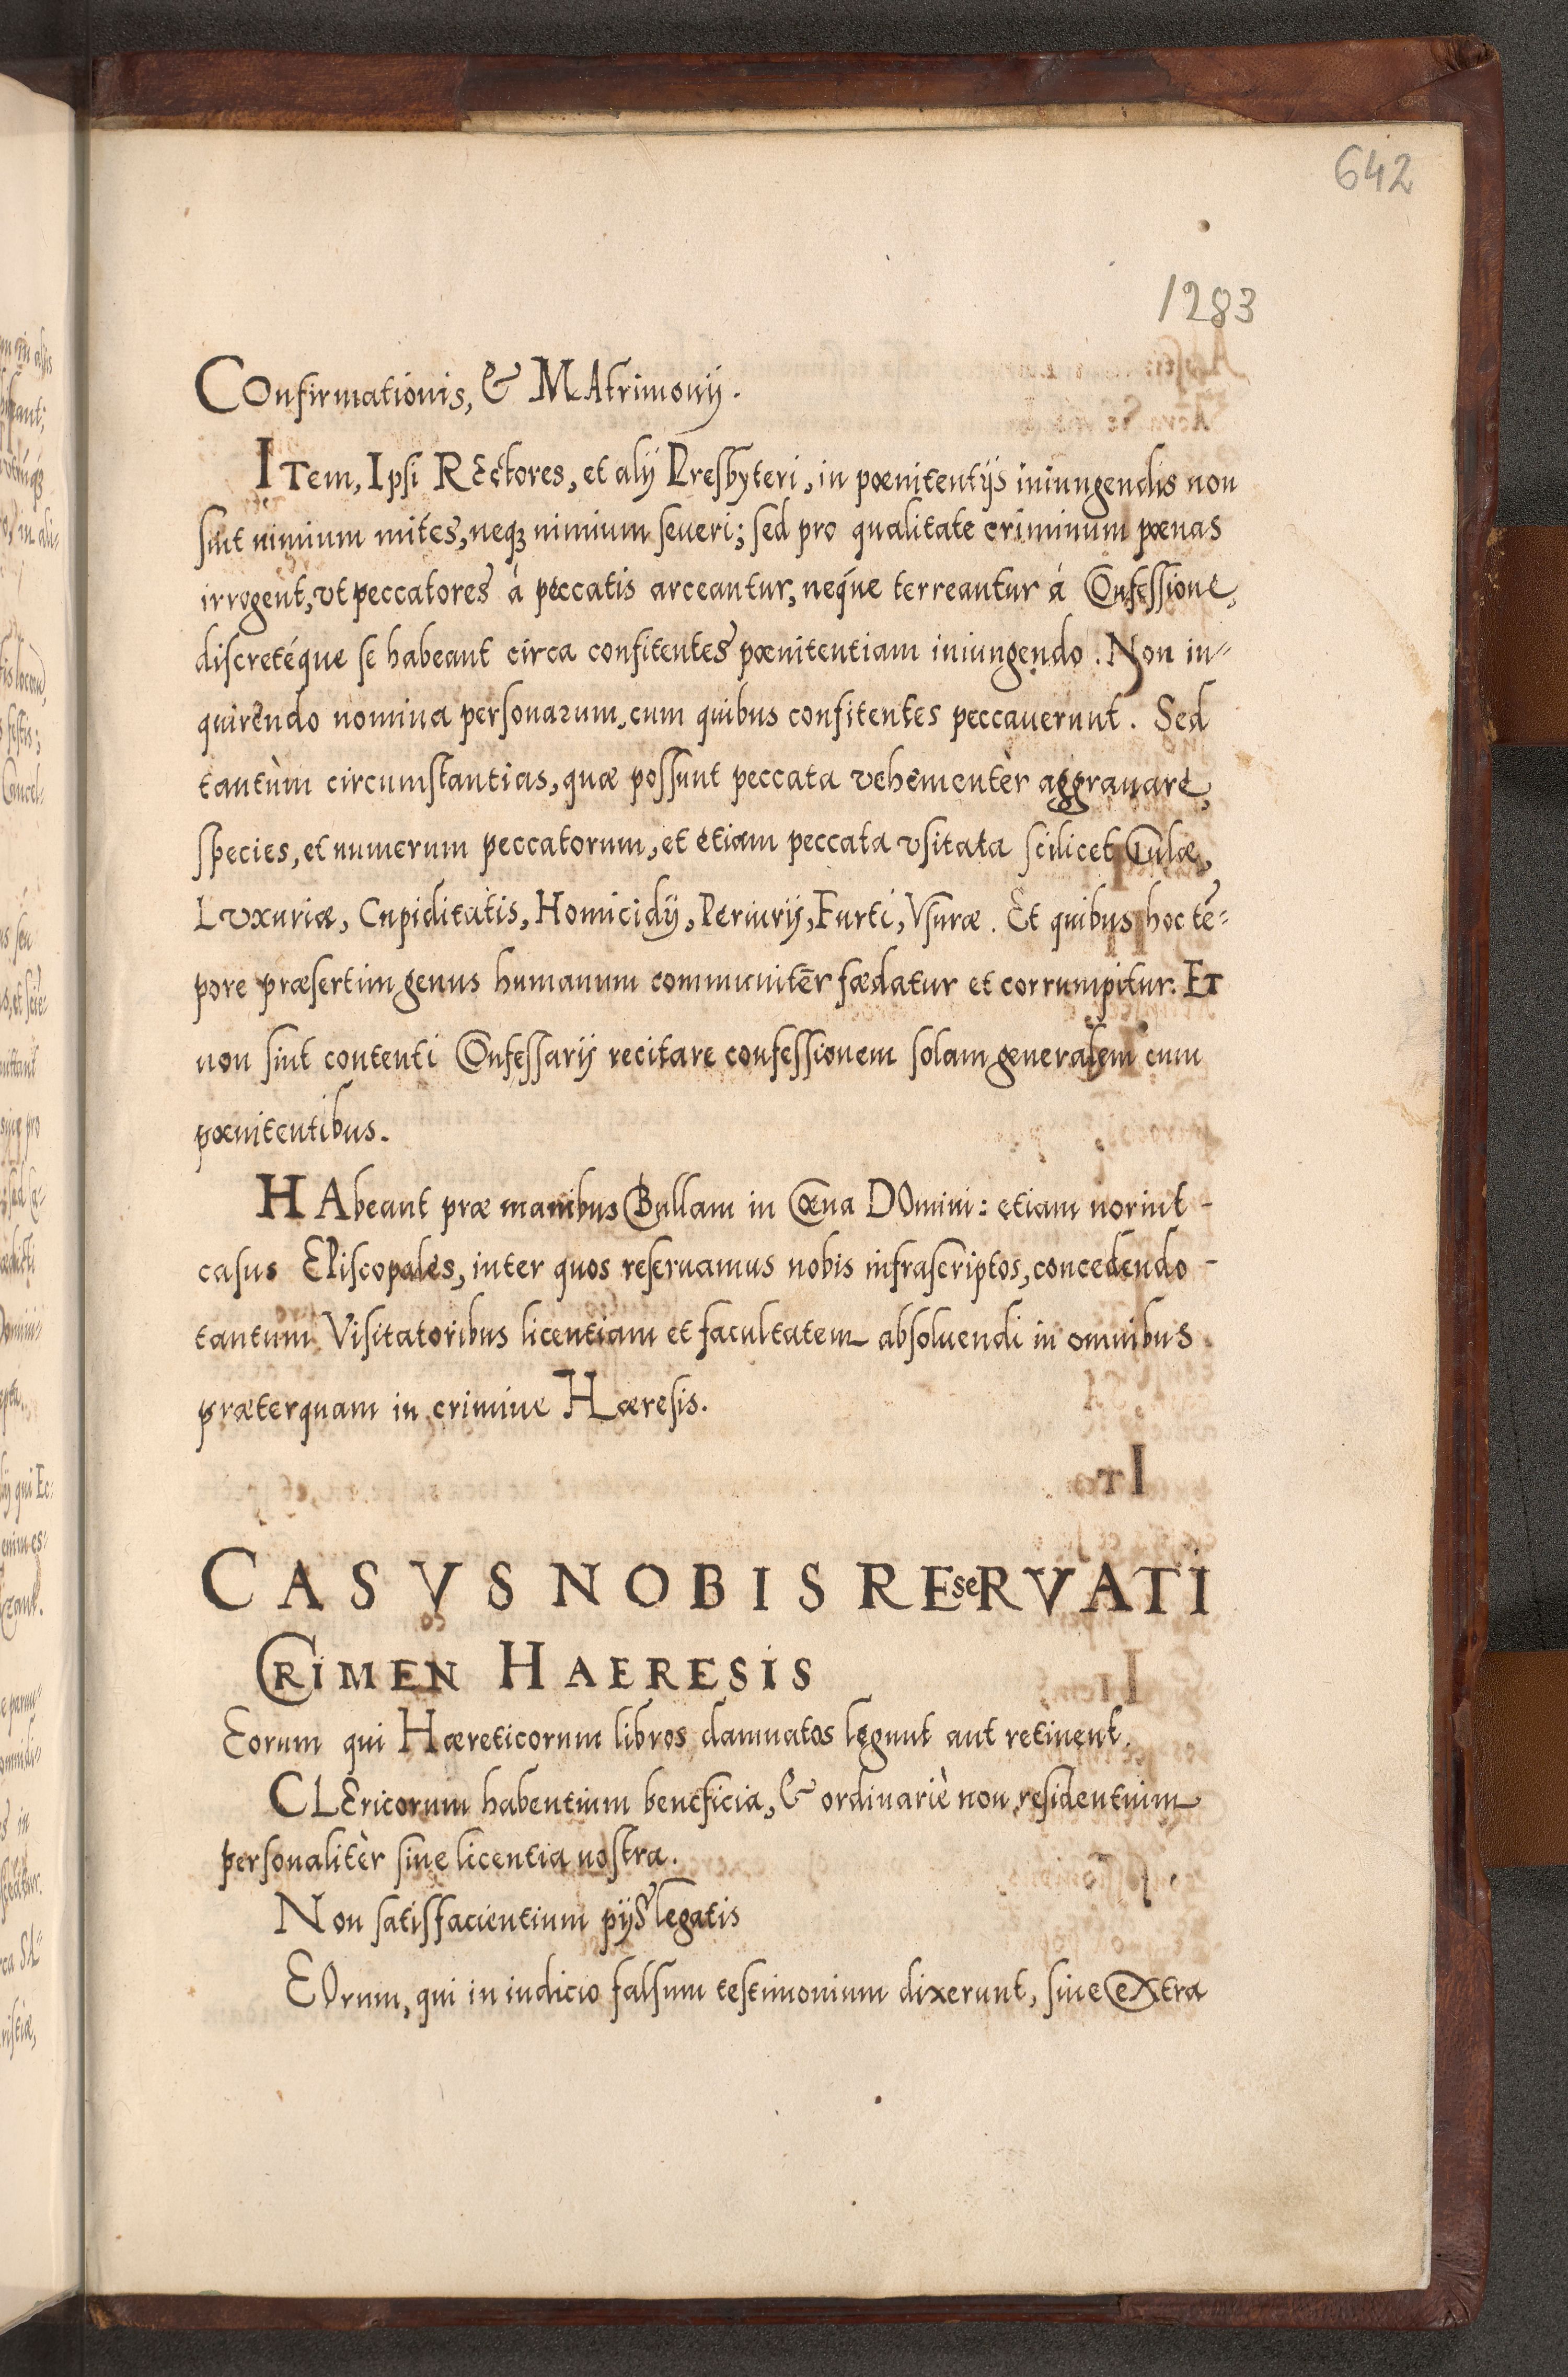 642
1283
COnfirmationis, & MAtrimonij.
ITem, Ipsi REctores, et alij Presbyteri, in pœnitentijs iniungendis non
sint nimium mites, neqꝫ nimium seueri; sed pro qualitate criminum pœnas
irrogent, vt peccatores à peccatis arceantur, neq́ue terreantur á Confessione,
discretéque se habeant circa confitentes pœnitentiam iniungendo. Non in=
quirendo nomina personarum, cum quibus confitentes peccauerunt. Sed
tantùm circumstantias, quæ possunt peccata vehementèr aggrauare,
species, et numerum peccatorum, et etiam peccata vsitata scilicet Gulæ,
Lvxuriæ, Cupiditatis, Homicidij, Periurij, Furti, Vsuræ. Et quibus hoc tē=
pore præsertim genus humanum communitēr fædatur et corrumpitur. ET
non sint contenti Confessarij recitare confessionem solam generalem cum
pœnitentibus.
HAbeant præ manibus Bullam in Cœna DOmini: etiam norint -
casus EPiscopales, inter quos reseruamus nobis infrascriptos, concedendo -
tantum Visitatoribus licentiam et facultatem absoluendi in omnibus
præterquam in crimine Hæresis.
CASVS NOBIS REseRVATI
CRIMEN HAERESIS
Eorum qui Hæreticorum libros damnatos legunt aut retinent.
CLEricorum habentium beneficia, & ordinariè non residentium
personalitèr sine licentia nostra.
Non satisfacientium pijs legatis
EOrum, qui in iudicio falsum testimonium dixerunt, siue eXtra